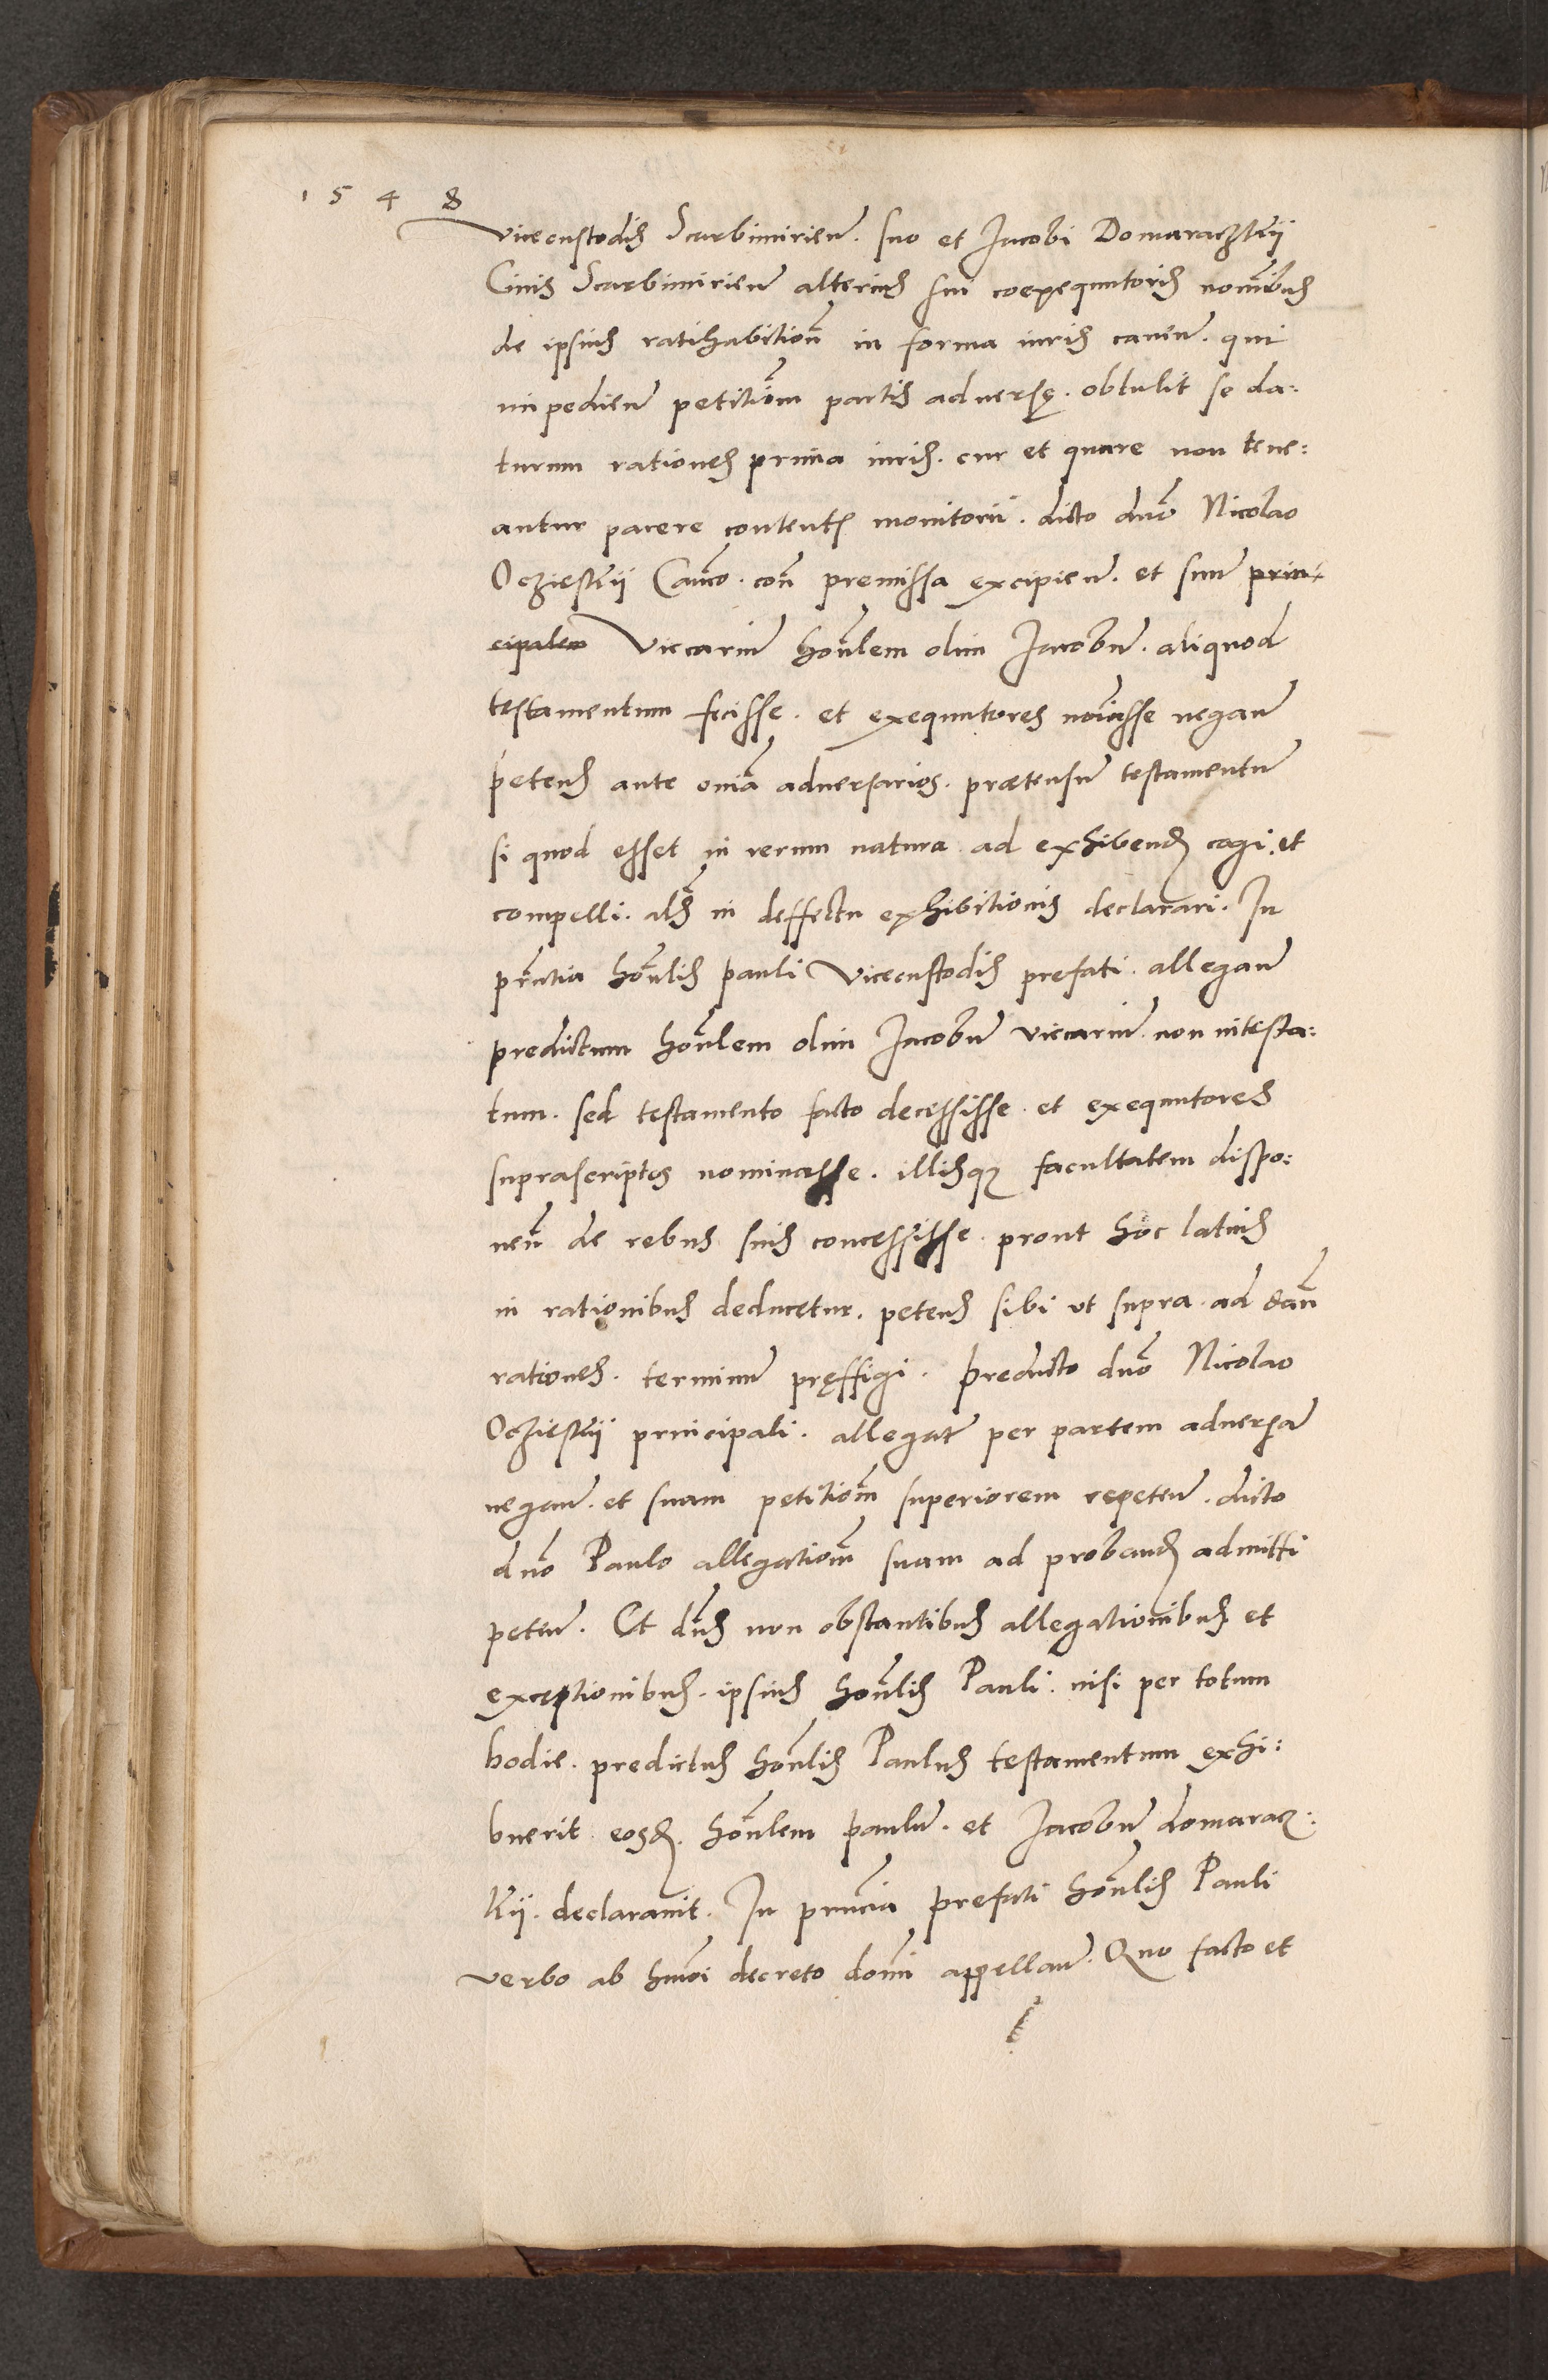 1548
vicecustodis Scarbimirien̄. suo et Jacobi Domaraczkii
Civis Scarbimirien̄ alterius sui coexequutoris noīnibus
de ipsius ratihabitioñ in forma iuris caven̄. qui
impedien̄ petitiōm partis adversę. obtulit se da:
turum rationes prima iuris. cur et quare non tene:
antur parere contentis monitorii. dicto dn̄o Nicolao
Oczieskii Can̄co. con̄ premissa excipien̄. et suū prin:
cipalem Viccariū hon̄lem olim Jacobū. aliquod
testamentum fecisse. et exequutores noīasse negan̄
petens ante oīa adversarios. praetensū testamentū
si quod esset in rerum natura ad exhibend cogi. et
compelli. als in deffectu exhibitionis declarari. In
pn̄tia hon̄lis pauli Vicecustodis prefati. allegan̄
predictum hon̄lem olim Jacobū viccariū non intesta:
tum. sed testamento facto decessisse. et exequutores
suprascriptos nominasse. illisq facultatem dispo:
nen̄ de rebus suis concessisse. prout hoc latius
in rationibus deducetur. petens sibi ut supra ad dan̄
rationes. terminū pręffigi. Predicto dn̄o Nicolao
Oczieskii principali. allegat per partem adversā
negan̄. et suam petitiōm superiorem repeten̄. dicto
dn̄o Paulo allegatiōm suam ad proband admitti
peten̄. Et dn̄s non obstantibus allegationibus et
exceptionibus. ipsius hon̄lis Pauli. nisi per totum
hodie. predictus hon̄lis Paulus testamentum exhi:
buerit eosd. hon̄lem paulū. et Jacobū domaracz:
kii. declaravit. In pn̄cia prefati hon̄lis Pauli
verbo ab hmōi decreto dom̄i appellan̄. Quo facto et